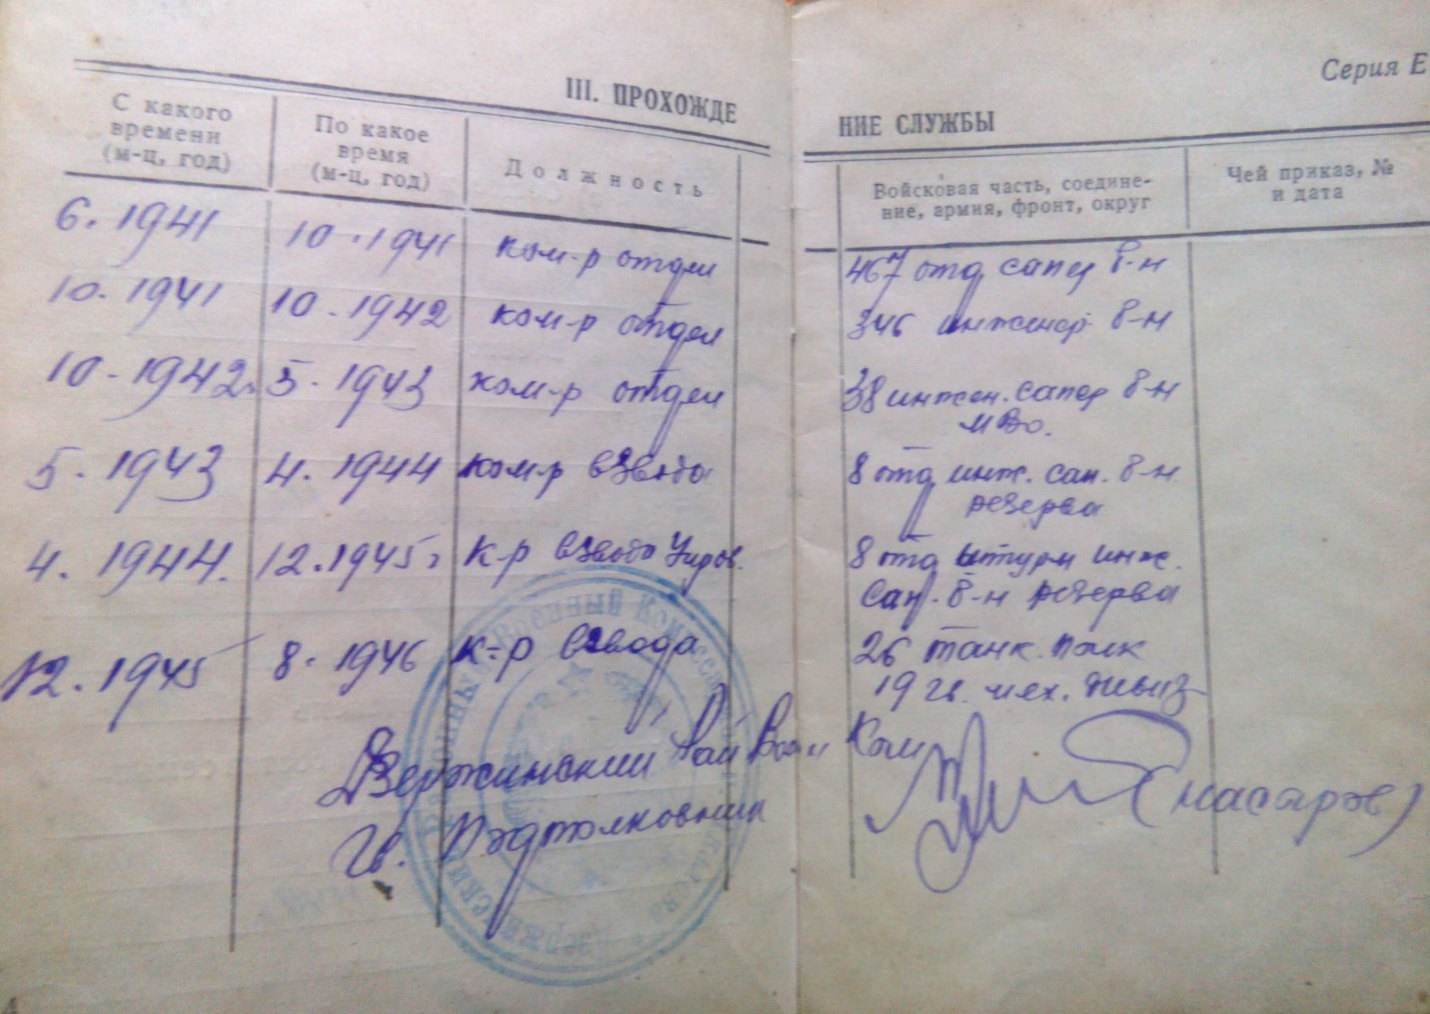 Серия Е
III. ПРОХОЖДЕНИЕ СЛУЖБЫ
С какого времени (м-ц, год) По какое время (м-ц, год) Должность Войсковая часть, соедине-ние, армия, фронт, округ Чей приказ, № и дата
6. 1941 10. 1941 ком-р отдел 467 отд сапер б-н
10. 1941 10. 1942 ком-р отдел 346 инженер б-н
10. 1942. 5. 1943 ком-р отдел 38 инжен. сапер б-н
МВО.
5. 1943 4. 1944 ком-р взвода 8 отд инж. сап. б-н
резерва
4. 1944. 12. 1945 г к-р взвода 8 отд штурм инж.
сап. б-н резерва
12. 1945 8. 1946 к-р взвода 26 танк. полк
19 гв. мех. дивиз
Дзержинский Рай Воен Ком
Гв. Подполковник (Насаров)